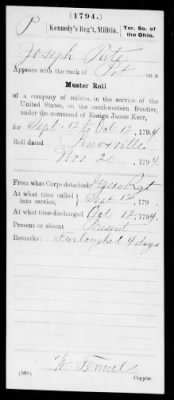 (1794.)
P Kennedy's Reg't, Militia. Ter. So. of the Ohio.
Joseph Pate
Appears with the rank of Pvt on a
Muster Roll
of a company of militia, in the service of the
United States, on the southwestern frontier,
under the command of Ensign James Kerr,
for Sept. 12 to Oct 12, 1794
Roll dated Knoxville
Nov 20, 1794.
From what Corps detached:
At what time called into service, Sept 12, 179
At what time discharged Oct 12, 1794.
Present or absent Present
Remarks: Furloughed 4 days
(569) Copyist.